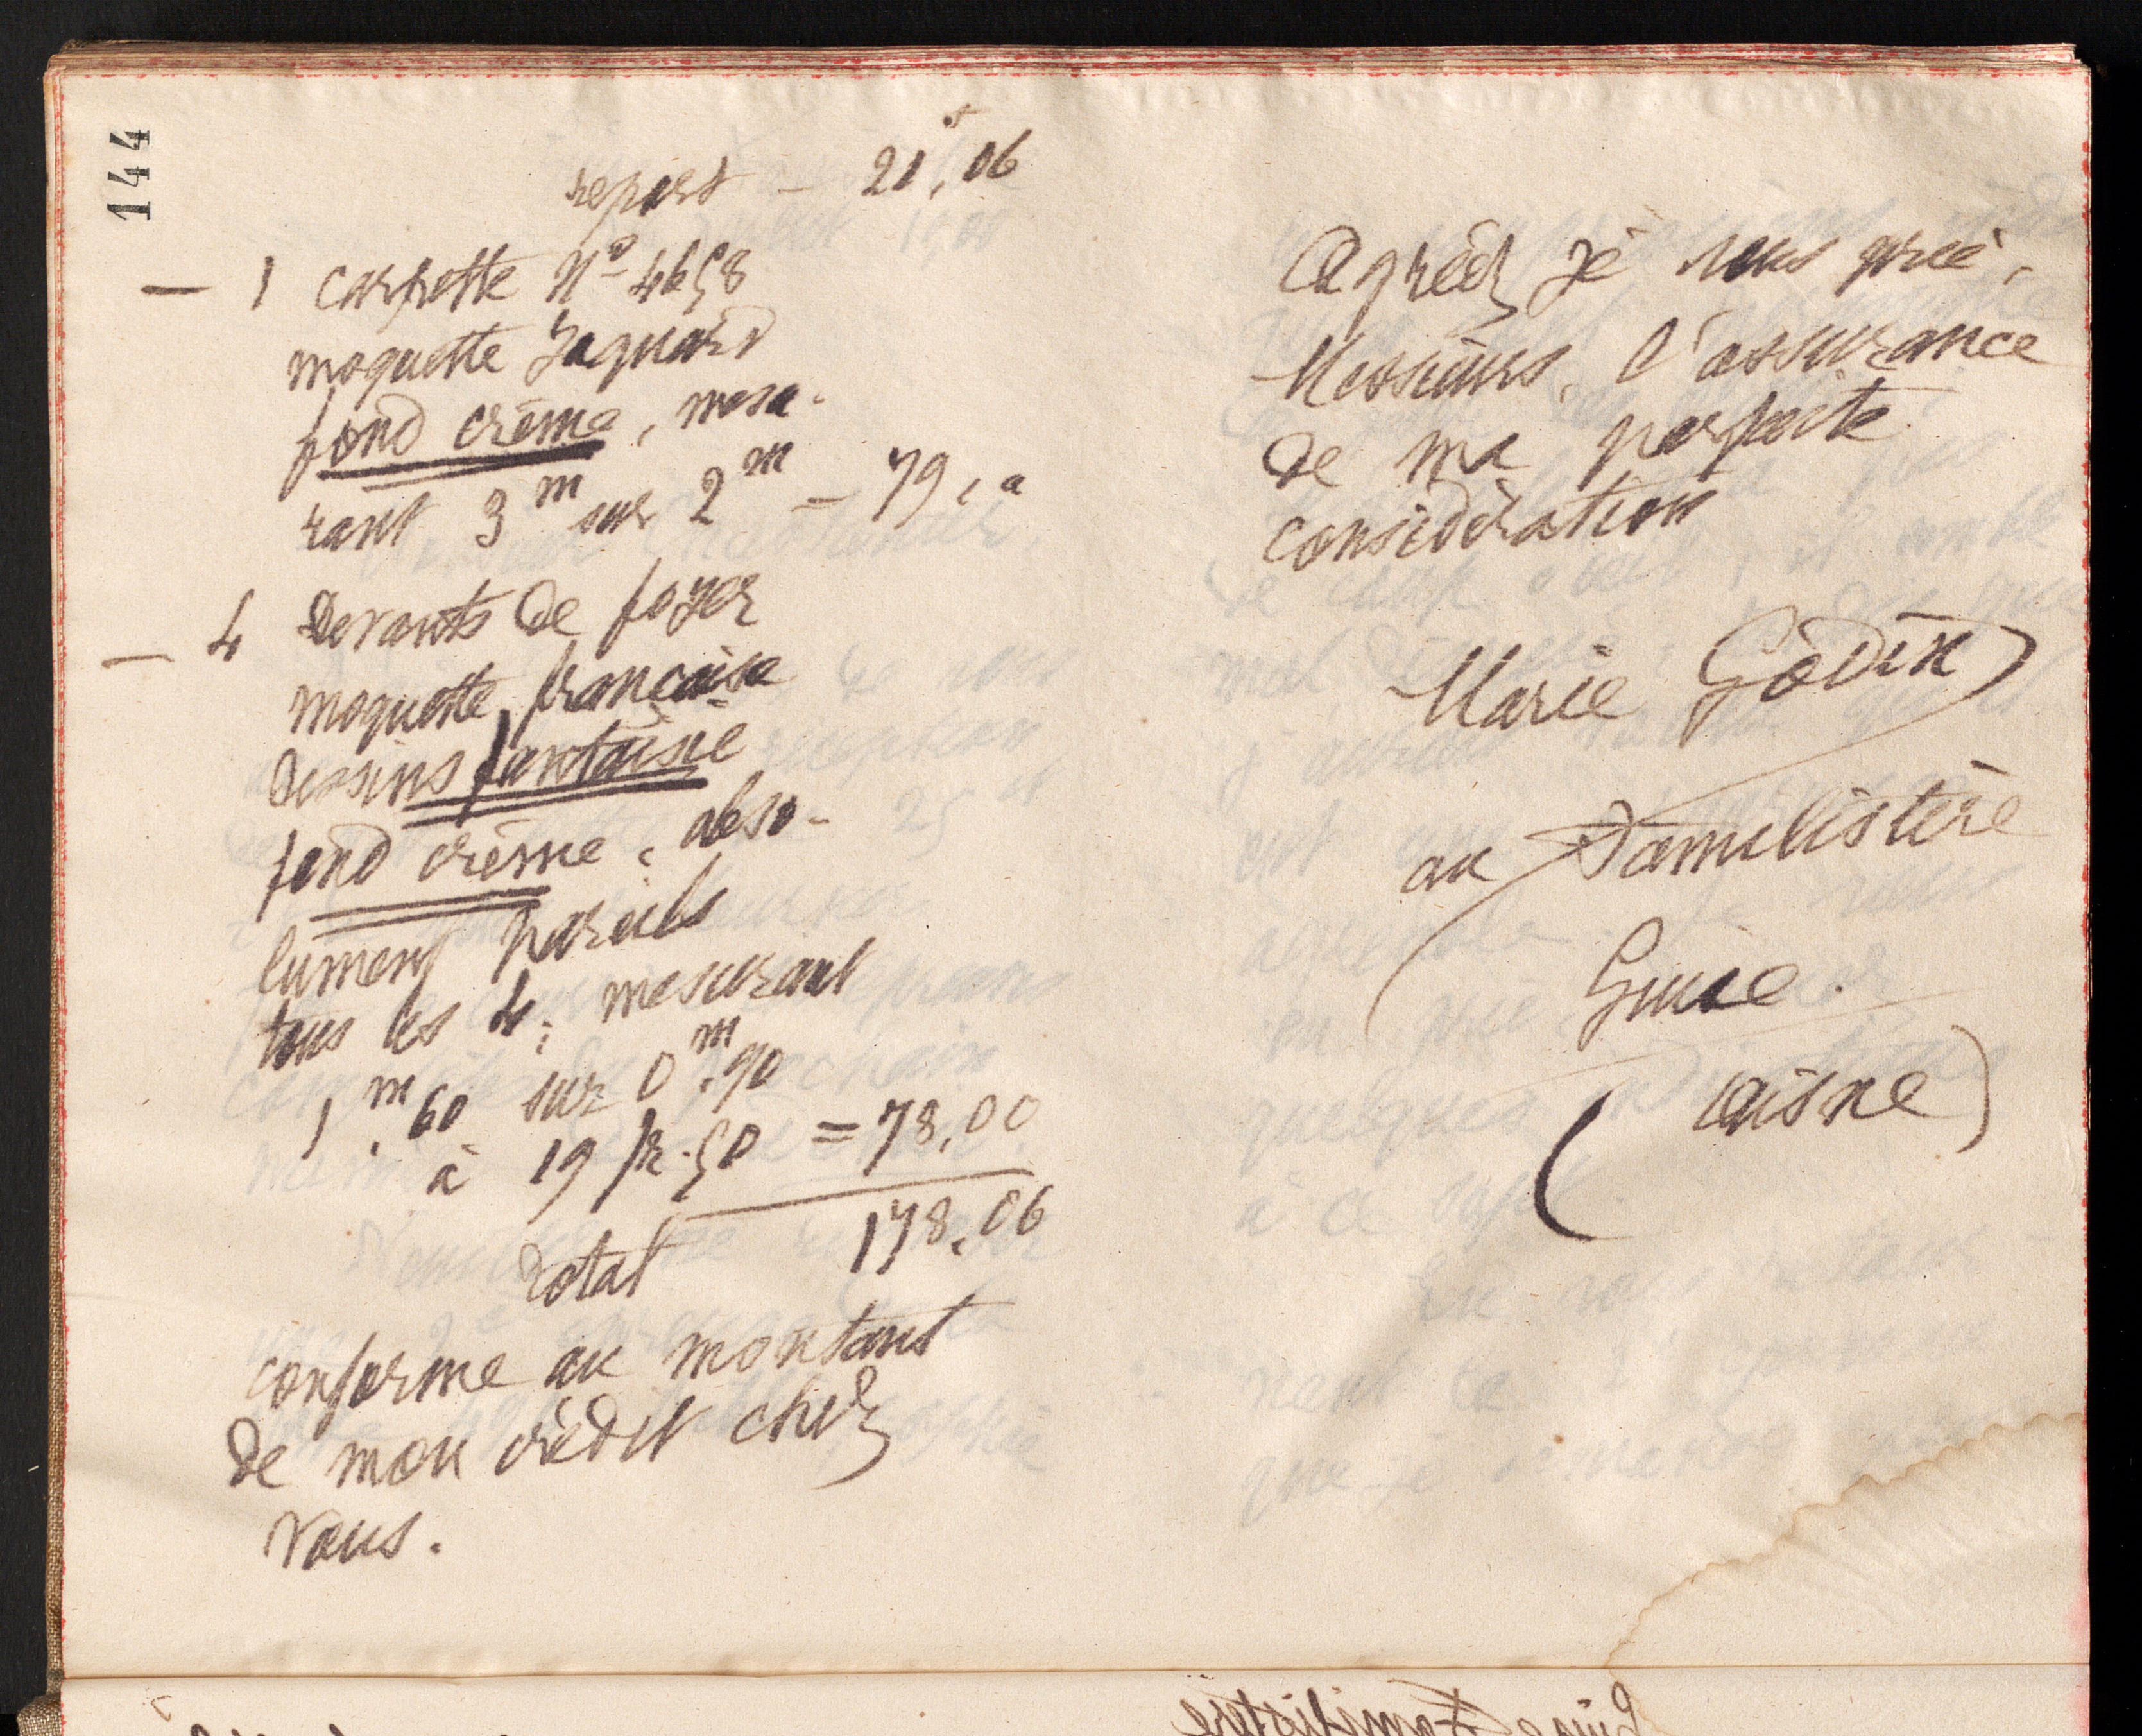 144
report — 21f,06
— 1 carpette N° 4658
moquette Jaquard
fond crème, mesu-
rant 3m sur 2m — 79,"
— 4 Devants de foyer
moquette française
dessins fantaisie
fond crème, abso-
lument pareils
tous les 4, mesurant
1m,60 sur 0m,90
à 19 fr.50 = 78,00
Total 178,06
conforme au montant
de mon crédit chez
vous.
Agréez je vous prie,
Messieurs, l'assurance
de ma parfaite
considération
Marie Godin
au Familistère
Guise.
(Aisne)